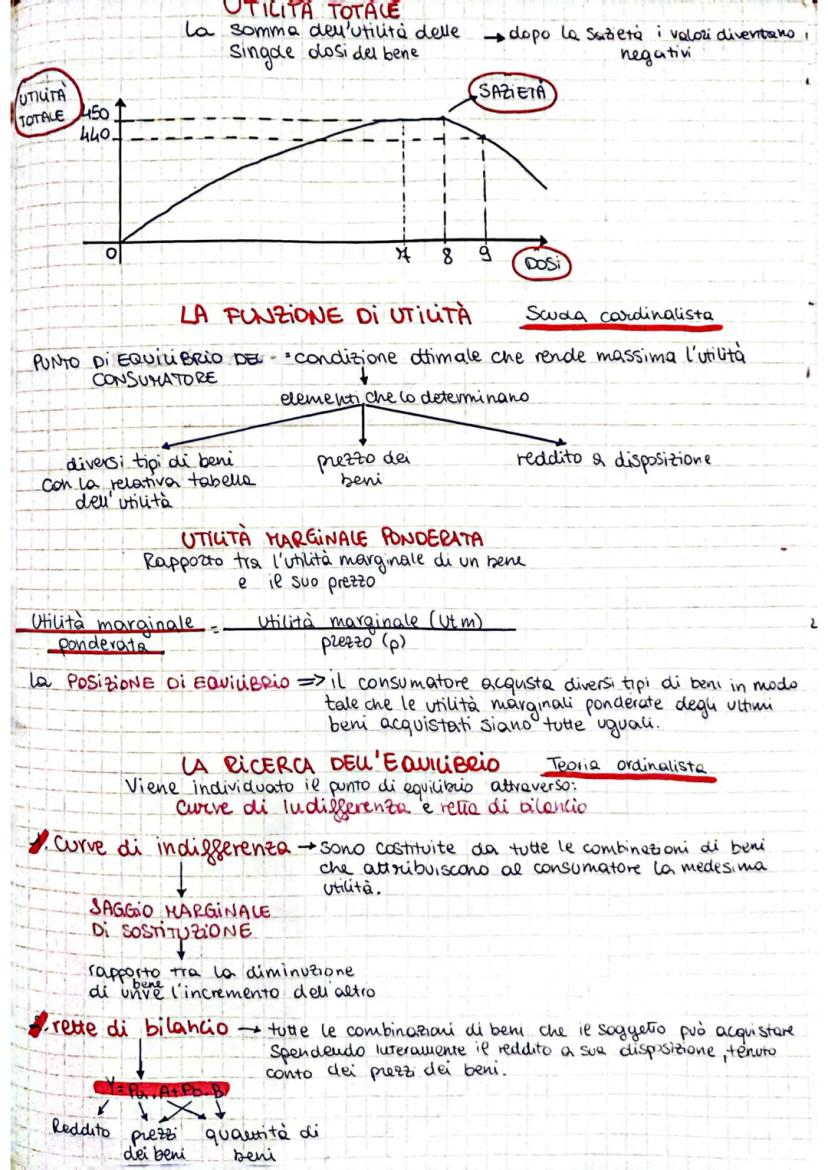 UTILITÀ TOTALE
La somma dell'utilità delle → dopo la Sazietà i valori diventano
singole dosi del bene negativi
UTILITÀ
TOTALE
SAZIETÀ
450
440
0 7 8 9
DOSi
LA FUNZIONE Di UTILITÀ Scuola cardinalista
PUNTO Di EQUILIBRIO DEL = condizione ottimale che rende massima l'utilità
CONSUMATORE
elementi che lo determinano
diversi tipi di beni
con la relativa tabella
dell'utilità
prezzo dei
beni
reddito a disposizione
UTILITÀ MARGINALE PONDERATA
Rapporto tra l'utilità marginale di un bene
e il suo prezzo
Utilità marginale = Utilità marginale (Utm)
ponderata prezzo (p)
La POSIZIONE Di EQUILIBRIO => il consumatore acqusta diversi tipi di beni in modo
tale che le utilità marginali ponderate degli ultimi
beni acquistati siano tutte uguali.
LA RICERCA DELL'EQUILIBRIO Teoria ordinalista
Viene individuato il punto di equilibrio attraverso:
Curve di indifferenza e retta di bilancio
1. Curve di indifferenza → sono costituite da tutte le combinazioni di beni
che attribuiscono al consumatore la medesima
utilità.
SAGGIO MARGINALE
Di SOSTITUZIONE
rapporto tra la diminuzione
bene
di un e l'incremento dell'altro
rette di bilancio → tutte le combinazioni di beni che il soggetto può acquistare
spendendo interamente il reddito a sua disposizione, tenuto
conto dei prezzi dei beni.
Y=Pa.A+Pb.B
Reddito
prezzi
dei beni
quantità di
beni